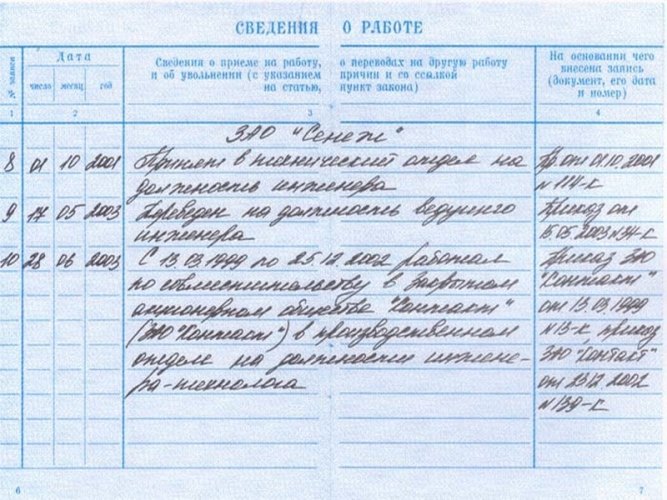 СВЕДЕНИЯ О РАБОТЕ
№ записи
Дата
число месяц год
Сведения о приеме на работу, о переводах на другую работу
и об увольнении (с указанием причин и со ссылкой
на статью, пункт закона)
На основании чего
внесена запись
(документ, его дата
и номер)
1 2 3 4
ЗАО "Сенеж"
8 01 10 2001 Принят в технический отдел на Пр. от 01.10.2001
должность инженера N 114-к
9 17 05 2003 Переведен на должность ведущего Приказ от
инженера 15.05.2003 N 34-к
10 28 06 2003 С 13.03.1999 по 25.12.2002 работал Приказ ЗАО
по совместительству в Закрытом "Контакт"
акционерном обществе "Контакт" от 13.03.1999
(ЗАО "Контакт") в производственном N 13-к приказ
отделе на должности инжене- ЗАО "Контакт"
ра-технолога от 23.12.2002
N 139-к
6 7